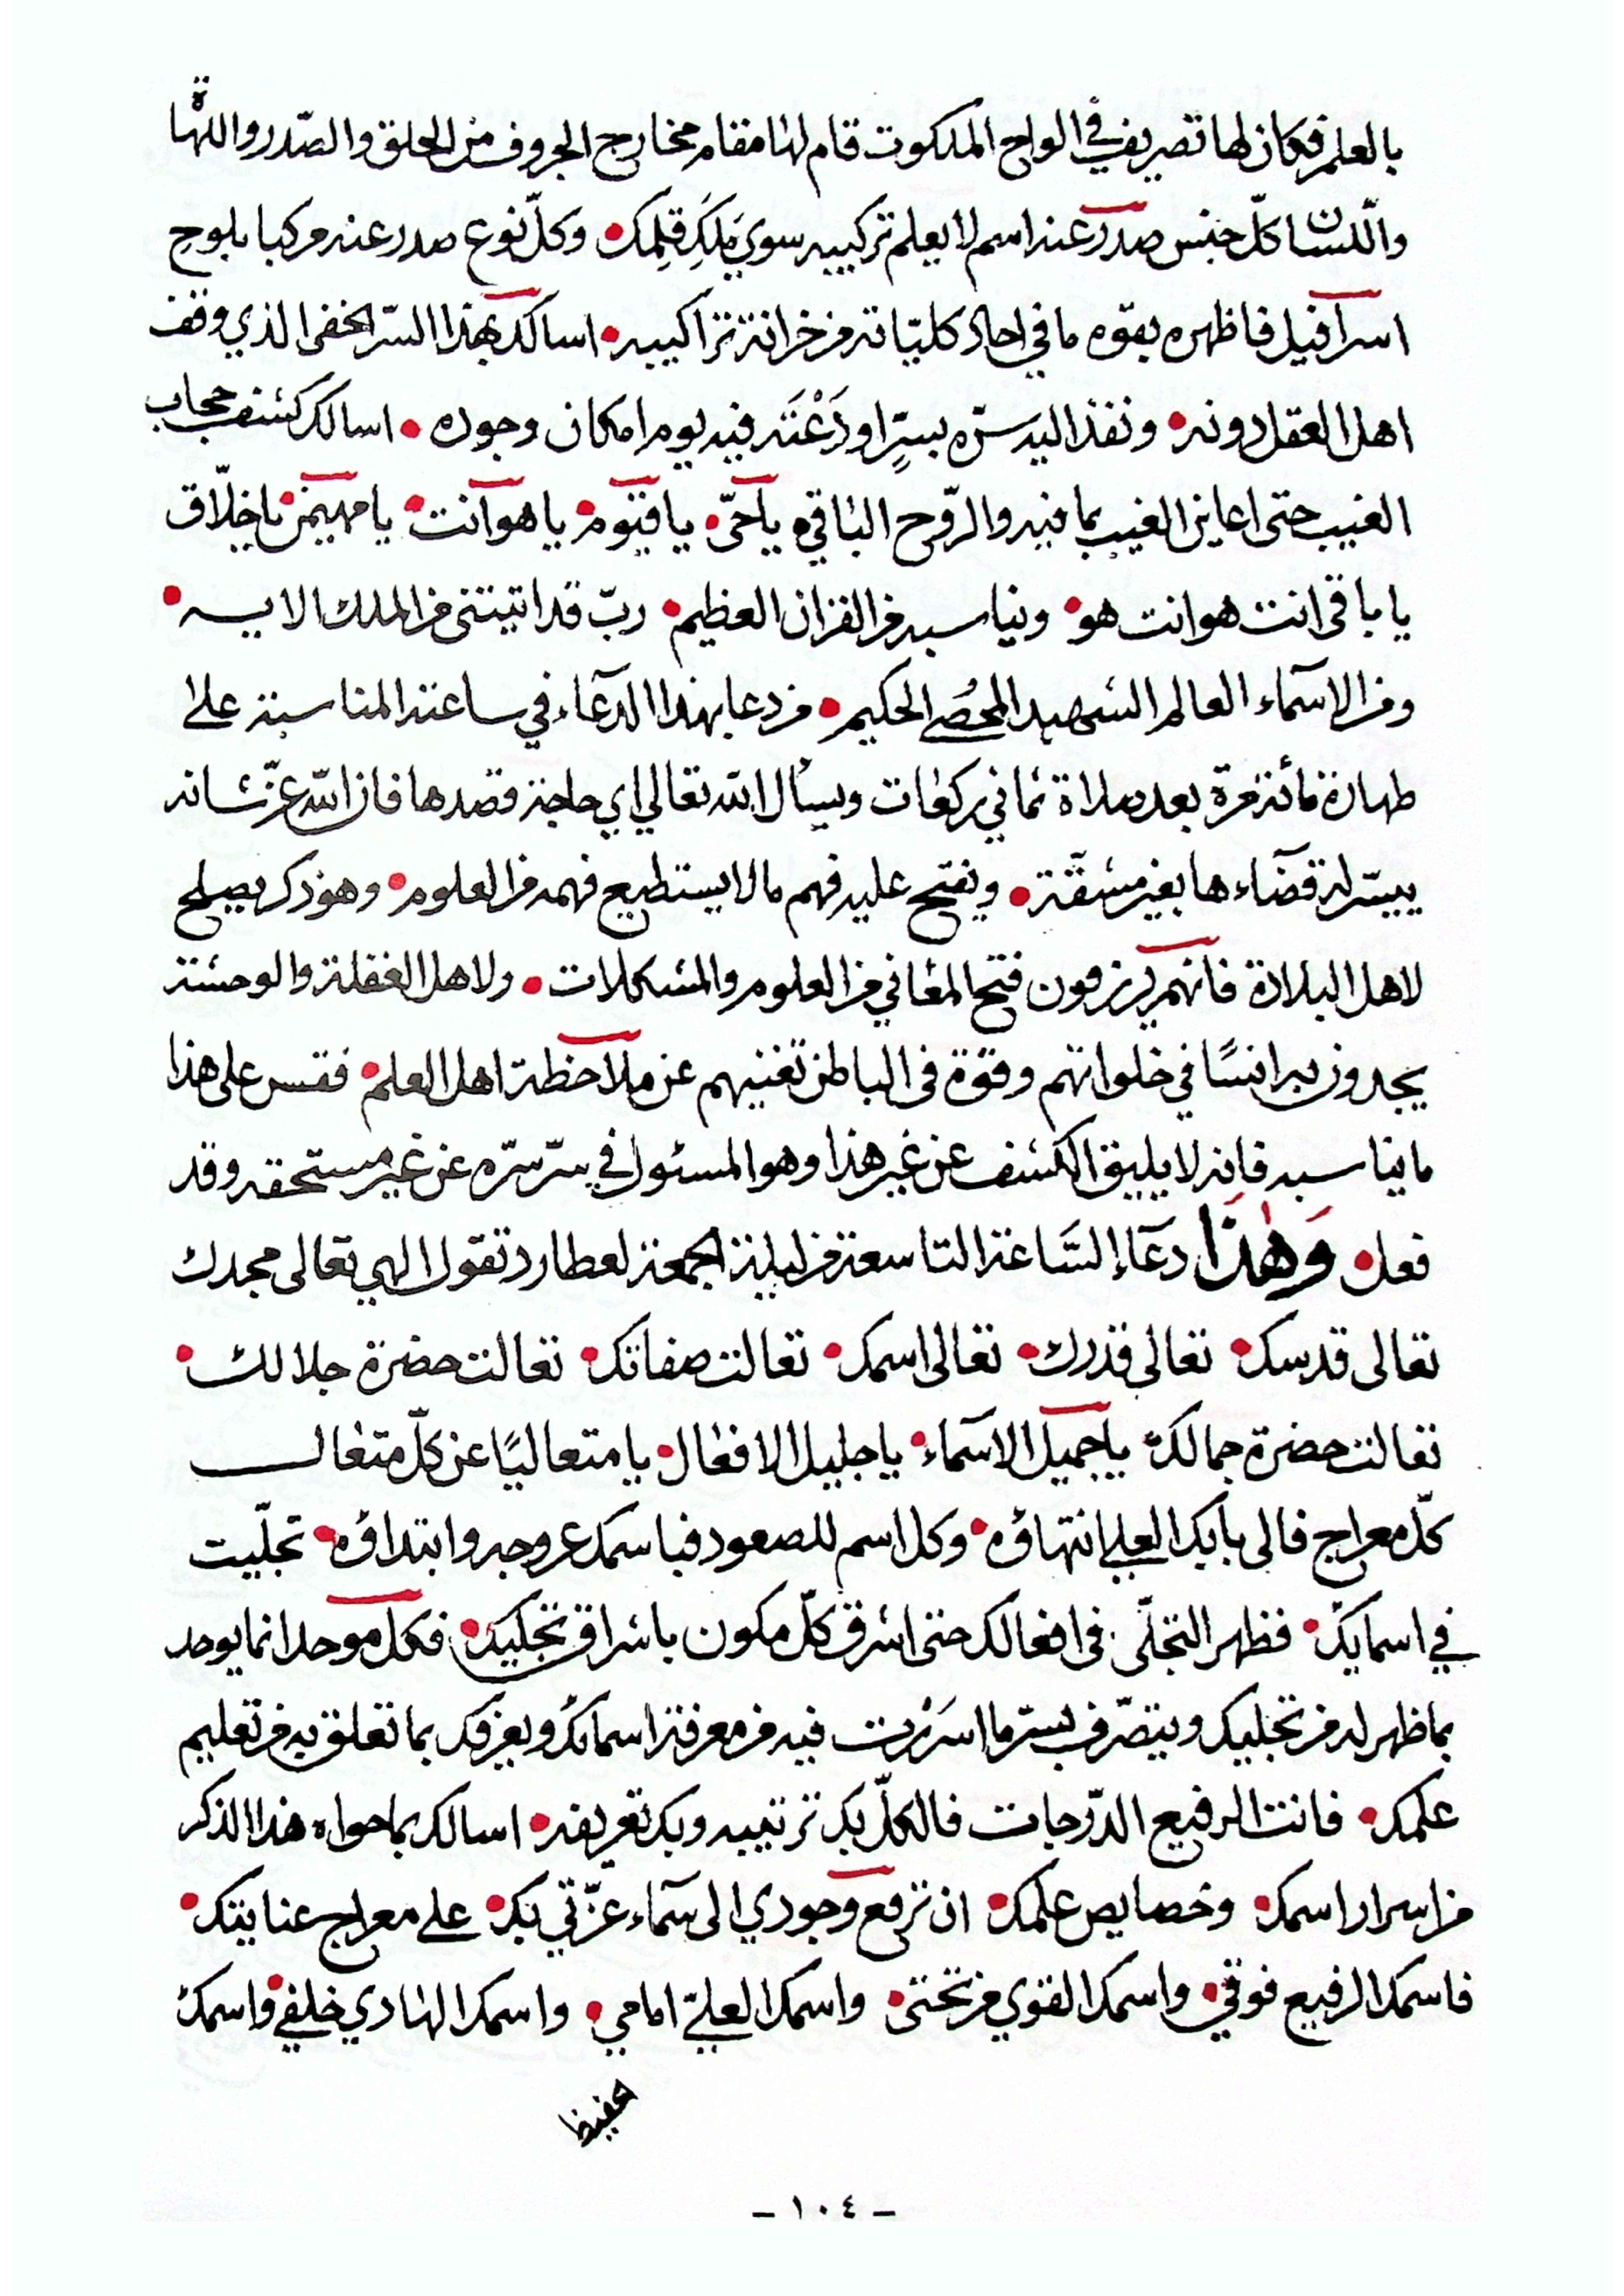 بالعلم فكان لها تصريف في الواح الملكوت قام لها مقام مخارج الحروف من الحلق والصّدر واللهاة
واللسان كلّ جنس صدر عنه اسم لا يعلم تركيبه سوي مَلَكِ قِلمِك • وكلّ نوع صدر عنه مركبا بلوح
اسرافيل فاظهره بقوّه ما في احاد كليّاته من خزانة تراكيبه • اسالك بهذا السرّ الخفى الذي وقف
اهل العقل دونه • ونفذ اليه سرّه بسرٍّ اودَعْتَه فيه يوم امكان وجوده • اسالك كشف حجاب
الغيب حتى اعاين الغيب بما فيه والرّوح الباقي يا حىّ • يا قيّوم • يا هو انت • يا مهيمن • يا خلّاق
يا باقى انت هو انت هو • ويناسبه من القران العظيم • ربّ قد اتيتنى من الملك الايه •
ومن الاسمآء العالم الشهيد المحُصى الحكيم • من دعا بهذا الدعآء في ساعته المناسبة على
طهارة مائة مرة بعد صلاة ثماني ركعات ويسأل الله تعالي اي حاجة قصدها فان الله عزّ شانه
ييسّر له قضآءها بغير مشقّة • ويفتح عليه فهم مالا يستطيع فهمه من العلوم • وهو ذكر يصلح
لاهل البلادة فانهم يرزقون فتح المعاني من العلوم والمشكلات • ولاهل الغفلة والوحشة
يجدون به انسًا في خلواتهم وقوّة فى الباطن تغنيهم عن ملاحظة اهل العلم • فقس على هذا
ما يناسبه فانه لا يليق الكشف عن غير هذا وهو المسئول في سرّ سرّه عن غير مستحقه وقد
فعل • وَهٰذَا دعآء السَّاعة التاسعة من ليلة الجمعة لعطارد تقول الهي تعالى مجدك
تعالى قدسك • تعالى قدرك • تعالى اسمك • تعالت صفاتك • تعالت حضرة جلالك •
تعالت حضرة جمالك يا جميل الاسمآء • يا جليل الافعال • يا متعاليًا عن كلّ متعال
كلّ معراج فالى بابك العلي انتهاؤه • وكل اسم للصعود فباسمك عروجه وابتداؤه • تجلّيت
في اسمايك • فظهر التجلّى فى افعالك حتى اشرق كلّ مكون باشراق تجليك • فكل موحد انما يوحد
بما ظهر له من تجليك ويتصرّف بسرّ ما اسرَرْت فيه من معرفة اسمائك ويعرفك بما تعلق به من تعليم
علمك • فانت الرفيع الدّرجات فالكلّ بك ترتيبه وبك تعريفه • اسالك بما حواه هذا الذكر
من اسرار اسمك • وخصايص علمك • ان ترفع وجودي الى سمآء عزّتي بك • على معراج عنايتك •
فاسمك الرفيع فوقي • واسمك القوي من تحتى • واسمك العليّ امامي • واسمك الهادي خلفي • واسمك
حفيظ
- ١٠٤ -